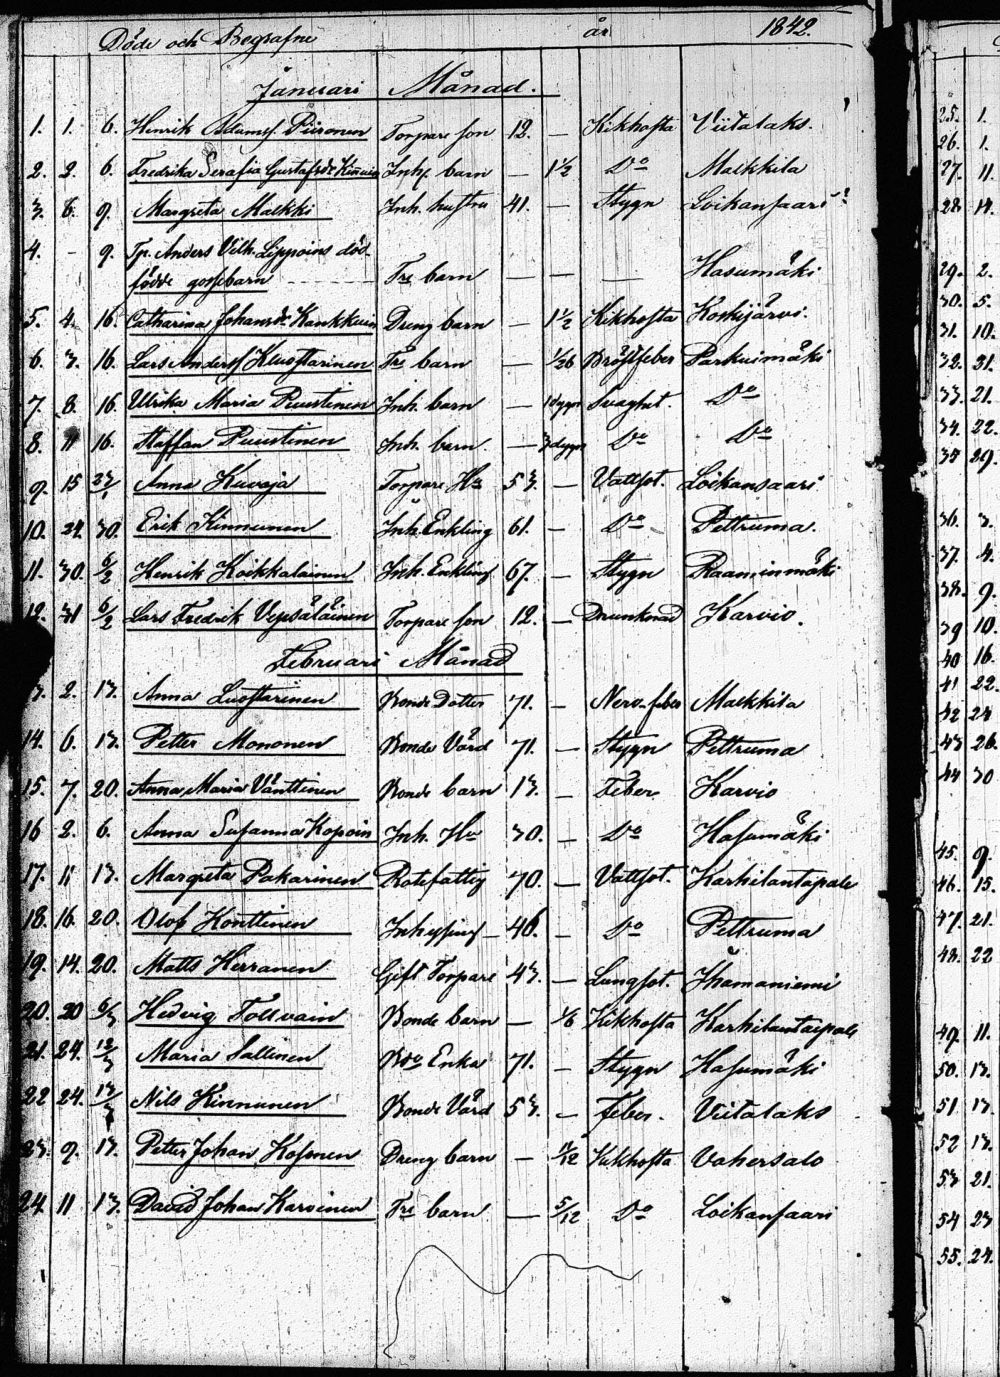 Döde och Begrafne år 1842.
Januari Månad.
1. 1. 6. Henrik Adamss. Piironen Torpare son 12. — Kikhosta Viitalaks.
2. 2. 6. Fredrika Serafia Gustafsdr Kinnuin Inh. barn — 1½ Do Malkkila
3. 6. 9. Margreta Malkki Inh. hustru 41. — Stygn Loikansaari
4. - 9. Tp. Anders Vilh. Lippoins död-
födde gossebarn Tre barn — — — Hasumäki
5. 4. 16. Catharina Johansdr. Kankkuin Dreng barn — 1½ Kikhosta Koskijärvi.
6. 3. 16. Lars Anderss Kuostarinen Tre barn — 1/26 Bröstfeber Parkuimäki
7. 8. 16. Ulrika Maria Puustinen Inh. barn — 1 dygn Svaghet. Do
8. 11 16. Staffan Puustinen Inh. barn. — 3 dygn Do Do
9. 15 23/1 Anna Kuvaja Torpare Hu 53. — Vattsot. Loikansaari
10. 24. 30. Erik Kinnunen Inh. Enkling 61. — Do Pettruma.
11. 30. 6/2 Henrik Koikkalainen Inh. Enkling 67. — Stygn Raaminmäki
12. 31 6/2 Lars Fredrik Vepsäläinen Torpare son 12. — Drunknad Karvio.
Februari Månad
3. 2. 13. Anna Luostarinen Bonde Dotter 71. — Nerv-feber Malkkila
14. 6. 13. Petter Mononen Bonde Vård 71. — Stygn Pettruma
15. 7. 20. Anna Maria Vänttinen Bonde barn 13. — Feber Karvio
16 2. 6. Anna Susanna Kopoin Inh. Hu 30. — Do Hasumäki
17. 11 13. Margreta Pakarinen Rotefattig 70. — Vattsot. Karhilantapale
18. 16. 20. Olof Konttinen Inhysing — 46. — Do Pettruma
19. 14. 20. Matts Herranen Gift Torpare 43. — Lungsot. Ihamaniemi
20. 20 6/3 Hedvig Tolvain Bonde barn — 1/6 Kikhosta Karhilantaipale
21. 24. 13/3 Maria Sallinen Bde Enka 71. — Stygn Hasumäki
22 24. 13/3 Nils Kinnunen Bonde Vård 53. — Feber. Viitalaks
23. 9. 13. Petter Johan Kosonen Dreng barn — 11/12 Kikhosta Vahersalo
24. 11 13. David Johan Karvinen Tre barn — 5/12 Do Loikansaari
25. 1.
26. 1.
27. 11
28. 14.
29. 2.
30. 5.
31. 10.
32. 21.
33. 21.
34. 22.
35 29.
36. 3.
37. 4.
38. 9.
39 10.
40 16.
41 22.
42 24
43 26.
44 30
45. 9.
46. 15.
47. 21.
48. 22
49. 11.
50. 13.
51 13.
52 13.
53 21.
54 23
55. 24.